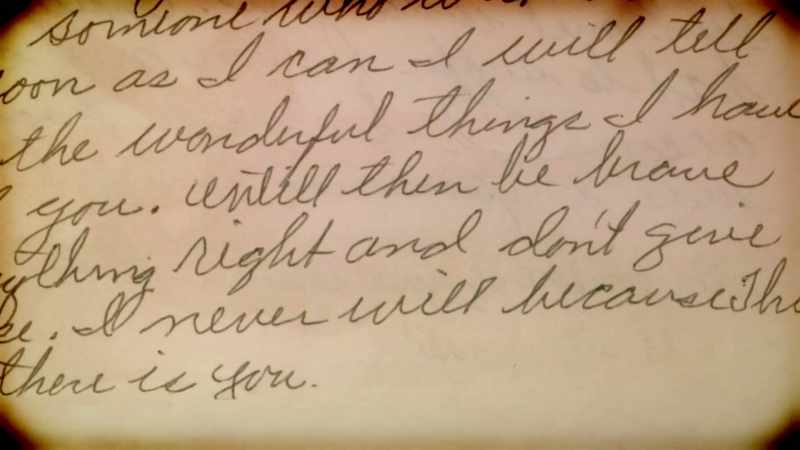 someone who
soon as I can I will tell
the wonderful things I have
you. Untill then be brave
right and don't give
I never will because
there is you.